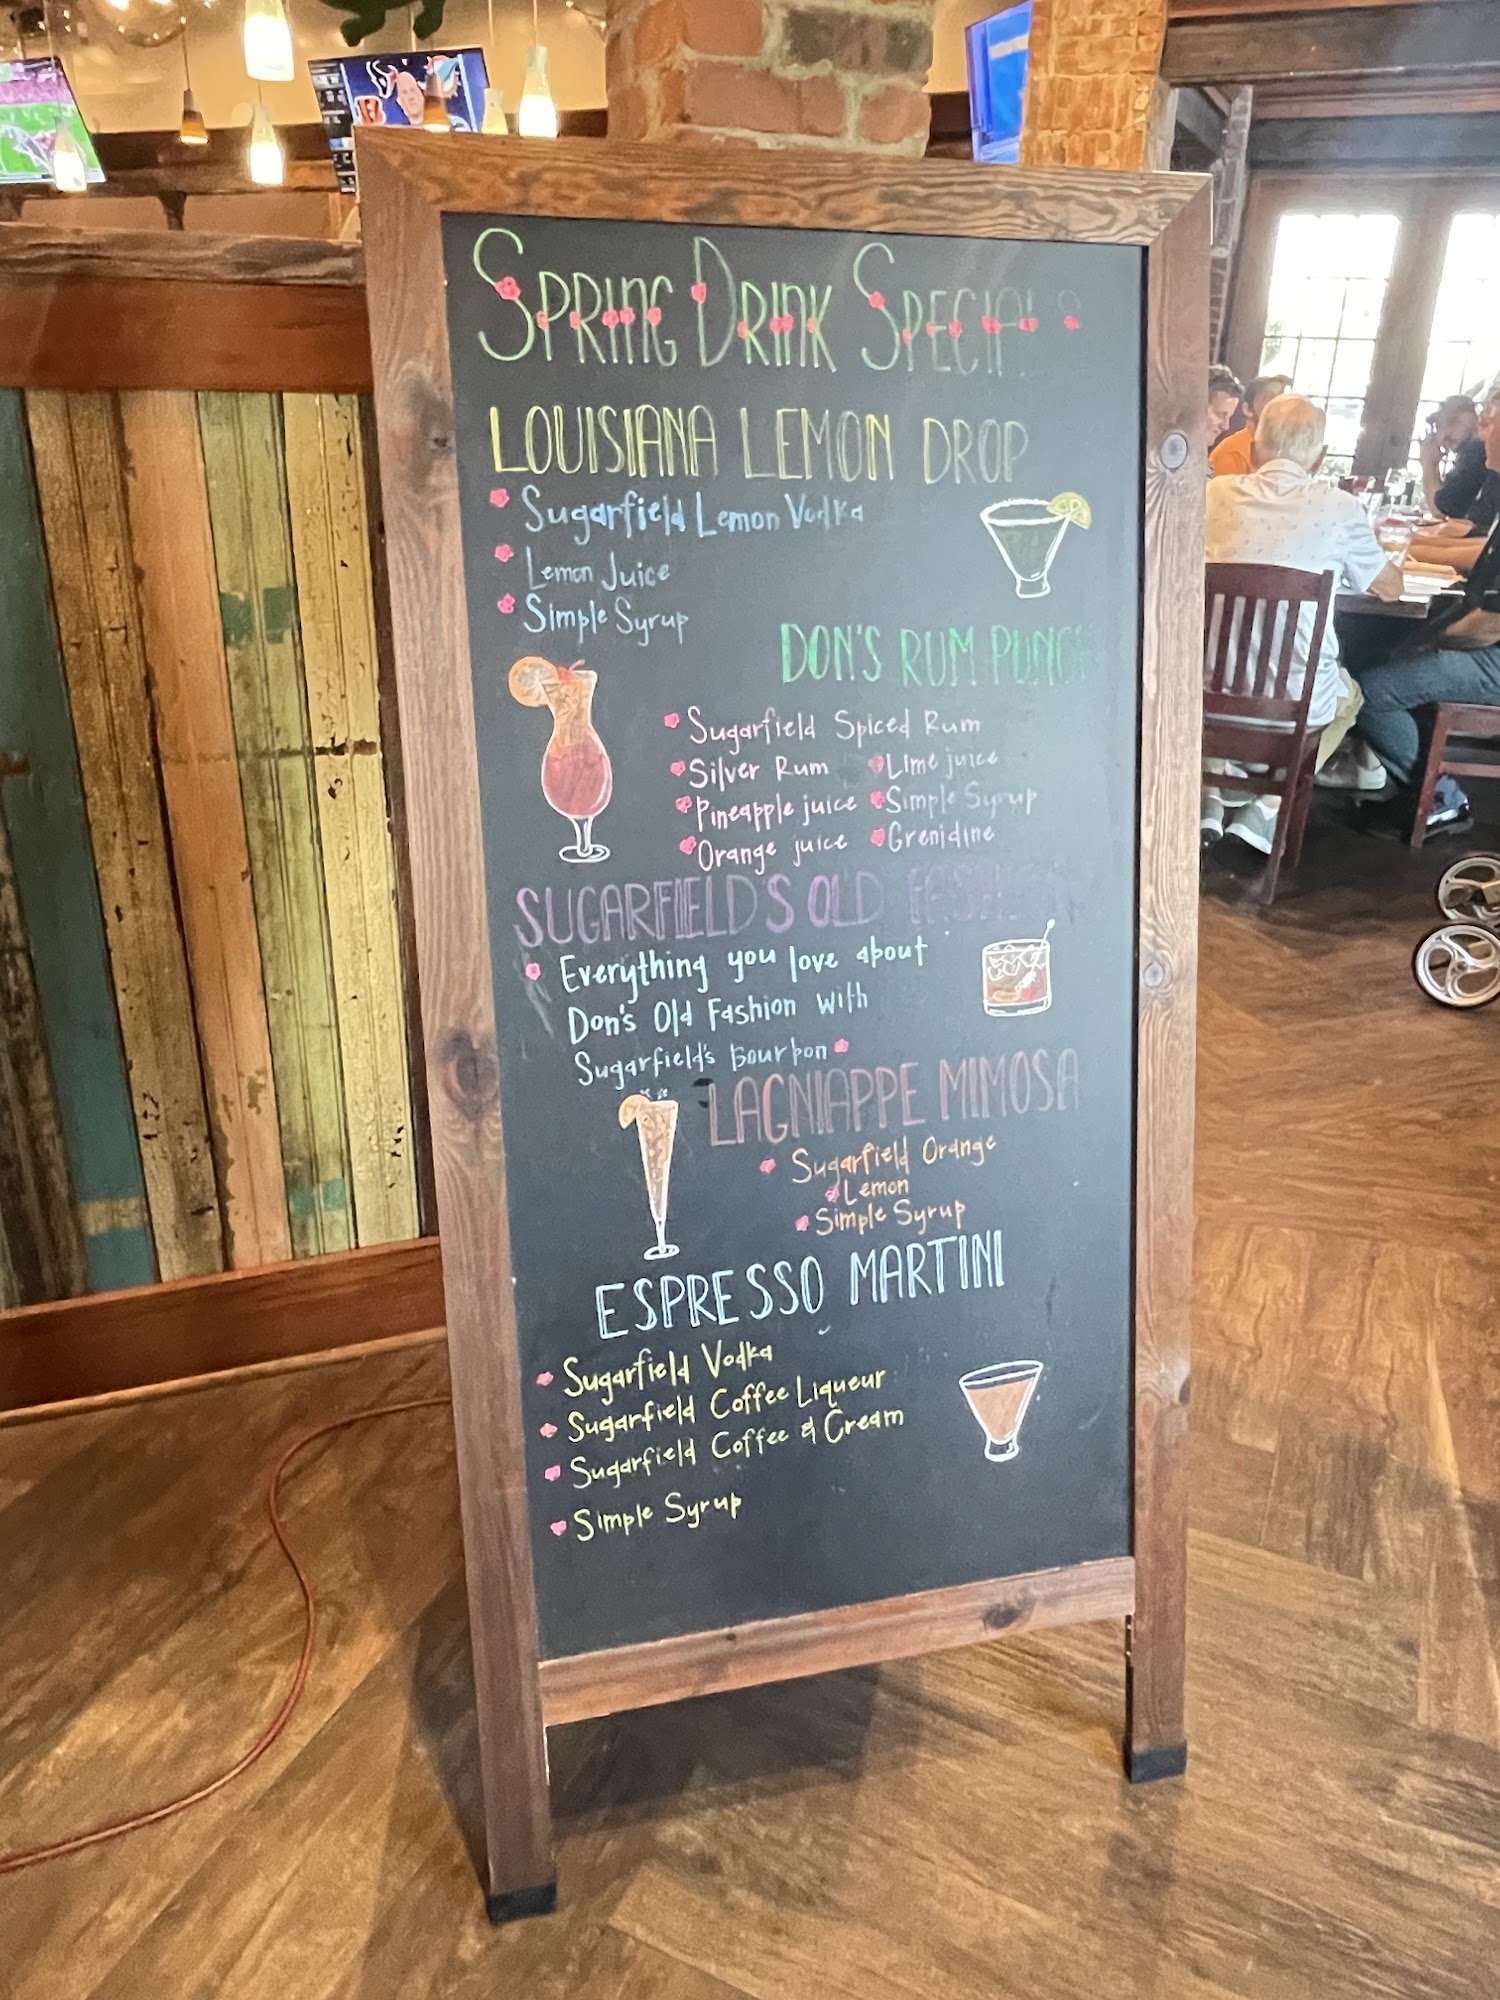 SPRING DRINK SPECIALS
LOUISIANA LEMON DROP
Sugarfield Lemon Vodka
Lemon Juice
Simple Syrup
DON'S RUM PUNCH
Sugarfield Spiced Rum
Silver Rum
Lime juice
Pineapple juice
Simple Syrup
Orange juice
Grenidine
SUGARFIELD'S OLD FASHION
Everything you love about
Don's Old Fashion with
Sugarfield's Bourbon
LAGNIAPPE MIMOSA
Sugarfield Orange
Lemon
Simple Syrup
ESPRESSO MARTINI
Sugarfield Vodka
Sugarfield Coffee Liqueur
Sugarfield Coffee & Cream
Simple Syrup